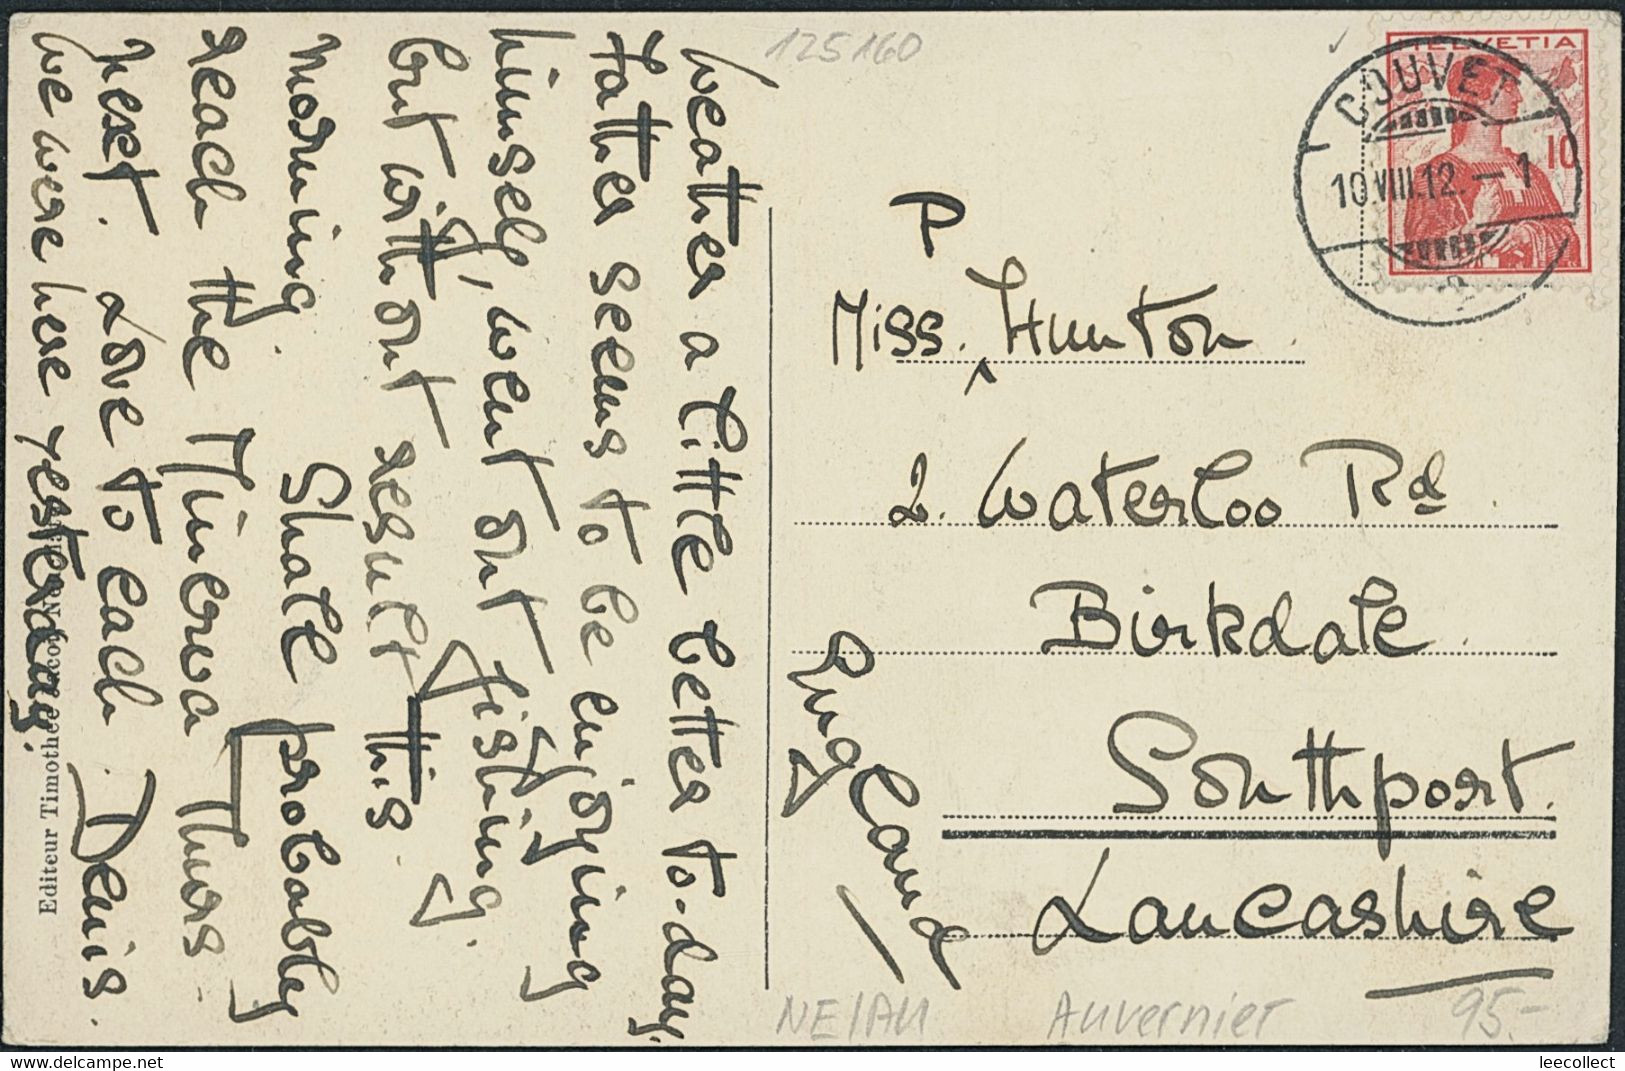 125160
HELVETIA
10
COUVET
10.VIII.12.-1
Weather a little better to-day.
Father seems to be enjoying
himself, went out fishing
but without result this
morning. Shall probably
reach the Minerva Thurs-
next. Love to each. Denis.
We were here yesterday.
P
Miss. ^ Hunton.
2. Waterloo Rd.
Birkdale.
Southport.
Lancashire
England
Editeur Timothée
NE/AU
Auvernier
95.-
leecollect